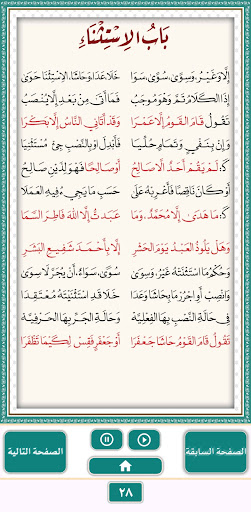 بَابُ الِاسْتِثْنَاءِ
إِلَّا وَغَيْرُ، وَسِوًى، سُوًى، سَوَا خَلَا عَدَا وَحَاشَا، الِاسْتِثْنَا حَوَى
إِذَا الْكَلَامُ تَمَّ وَهْوَ مُوجَبُ فَمَا أَتَى مِنْ بَعْدِ إِلَّا يُنْصَبُ
تَقُولُ قَامَ الْقَوْمُ إِلَّا عَمْرَا وَقَدْ أَتَانِي النَّاسُ إِلَّا بَكْرَا
وَإِنْ بِنَفْيٍ وَتَمَامٍ حُلِّيَا فَأَبْدِلَ اَوْ بِالنَّصْبِ جِئْ مُسْتَثْنِيَا
كَـ: لَمْ يَقُمْ أَحَدٌ الَّا صَالِحُ أَوْ صَالِحًا فَهْوَ لِذَيْنِ صَالِحُ
أَوْ كَانَ نَاقِصًا فَأَعْرِبْهُ عَلَى حَسَبِ مَا يَجِيءُ فِيهِ الْعَمَلَا
كَـ: مَا هَدَى إِلَّا مُحَمَّدٌ، وَمَا عَبَدْتُ إِلَّا اللهَ فَاطِرَ السَّمَا
وَهَلْ يَلُوذُ الْعَبْدُ يَوْمَ الْحَشْرِ إِلَّا بِأَحْمَدَ شَفِيعِ الْبَشَرِ
وَحُكْمُ مَا اسْتَثْنَتْهُ غَيْرُ، وَسِوَى سُوًى، سَوَاءٌ، أَنْ يُجَرَّ لَا سِوَى
وَانْصِبْ أَوِ اجْرُرْ مَا بِحَاشَا وَعَدَا خَلَا قَدِ اسْتَثْنَيْتَهُ مُعْتَقِدَا
فِي حَالَةِ النَّصْبِ بِهَا الْفِعْلِيَّهْ وَحَالَةِ الْجَرِّ بِهَا الْحَرْفِيَّهْ
تَقُولُ قَامَ الْقَوْمُ حَاشَا جَعْفَرَا أَوْ جَعْفَرٍ فَقِسْ لِكَيْمَا تَظْفَرَا
الصفحة السابقة
الصفحة التالية
٢٨